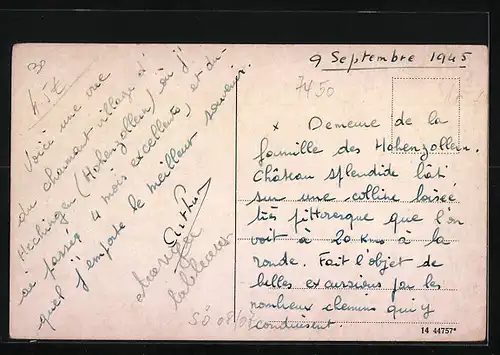 30
45€
Voici une vue
du charmant village d'
Hechingen (Hohenzollern) où j'
ai passé 4 mois excellents, et du-
quel j'emporte le meilleur souvenir.
SÖ 08/07
9 Septembre 1945
7450
x Demeure de la
famille des Hohenzollern.
Château splendide bâti
sur une colline boisée
très pittoresque que l'on
voit à 20 Kms à la
ronde. Fait l'objet de
belles excursions par les
nombreux chemins qui y
conduisent.
14 44757*